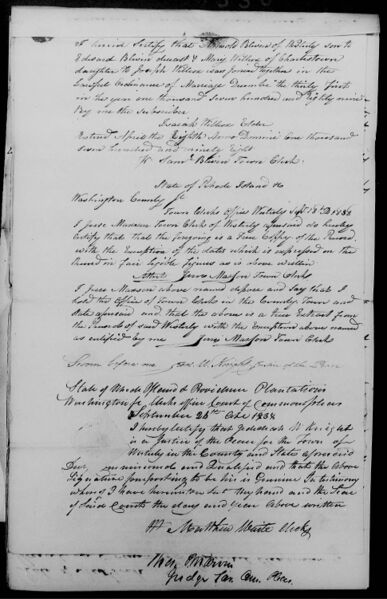 I hereby Certify that Arnold Bliven of Westerly son to
Edward Bliven deceast & Mary Willcox of Charlestown
daughter to Joseph Willcox was Joined together in the
Lawful Ordinance of Marriage December the thirty first
in the year one thousand Seven hundred and Eighty nine
By me the Subscriber
Isaiah Willcox Elder
Entred April the Eighth Anno Domini One thousand
seven hundred and ninety Eight
W. Saml Bliven Town Clerk
State of Rhode Island &c
Washington County Sc
Town Clerks Office Westerly Sept 1838
I Jesse Maxson Town Clerk of Westerly aforesaid do hereby
Certify that the foregoing is a True Copy of the Record
with the Exception of the dates which is expressed on the
Record in fair legible figures as is above written
Attest Jesse Maxson Town Clerk
I Jesse Maxson above named depose and Say that I
hold the Office of Town Clerk in the County Town and
State aforesaid and that the above is a True Extract from
the Records of said Westerly with the Exception above named
as certified by me Jesse Maxson Town Clerk
Sworn before me W. Knight Justice of the Peace
State of Rhode Island & Providence Plantations
Washington Sc Clerks office Court of Common pleas
September 26th 1838
I hereby certify that W Knight
is a Justice of the Peace for the Town of
Westerly in the County and State aforesaid
Duly Commissioned and Qualified and that the above
Signature purporting to be his is Genuine In testimony
whereof I have hereunto set my hand and the Seal
of Said Court the day and year above written
Matthew Waite Clerk
Judge Com. Pleas